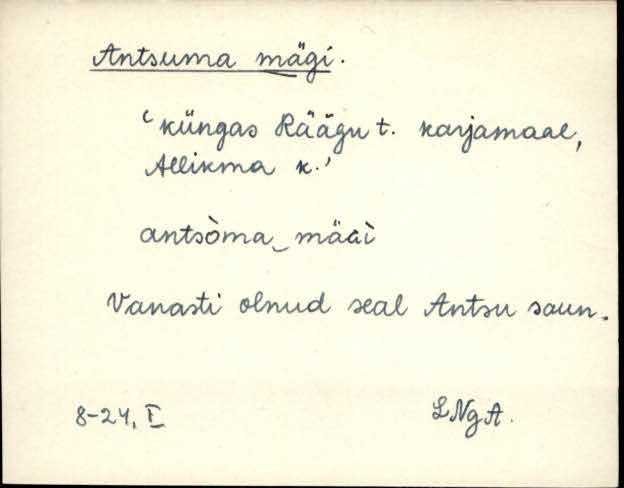 Antsuma mägi.
‘küngas Räägu t. karjamaal,
Allikma k.’
antsòma‿mäɢì
Vanasti olnud seal Antsu saun.
8-24, I
LNgA.